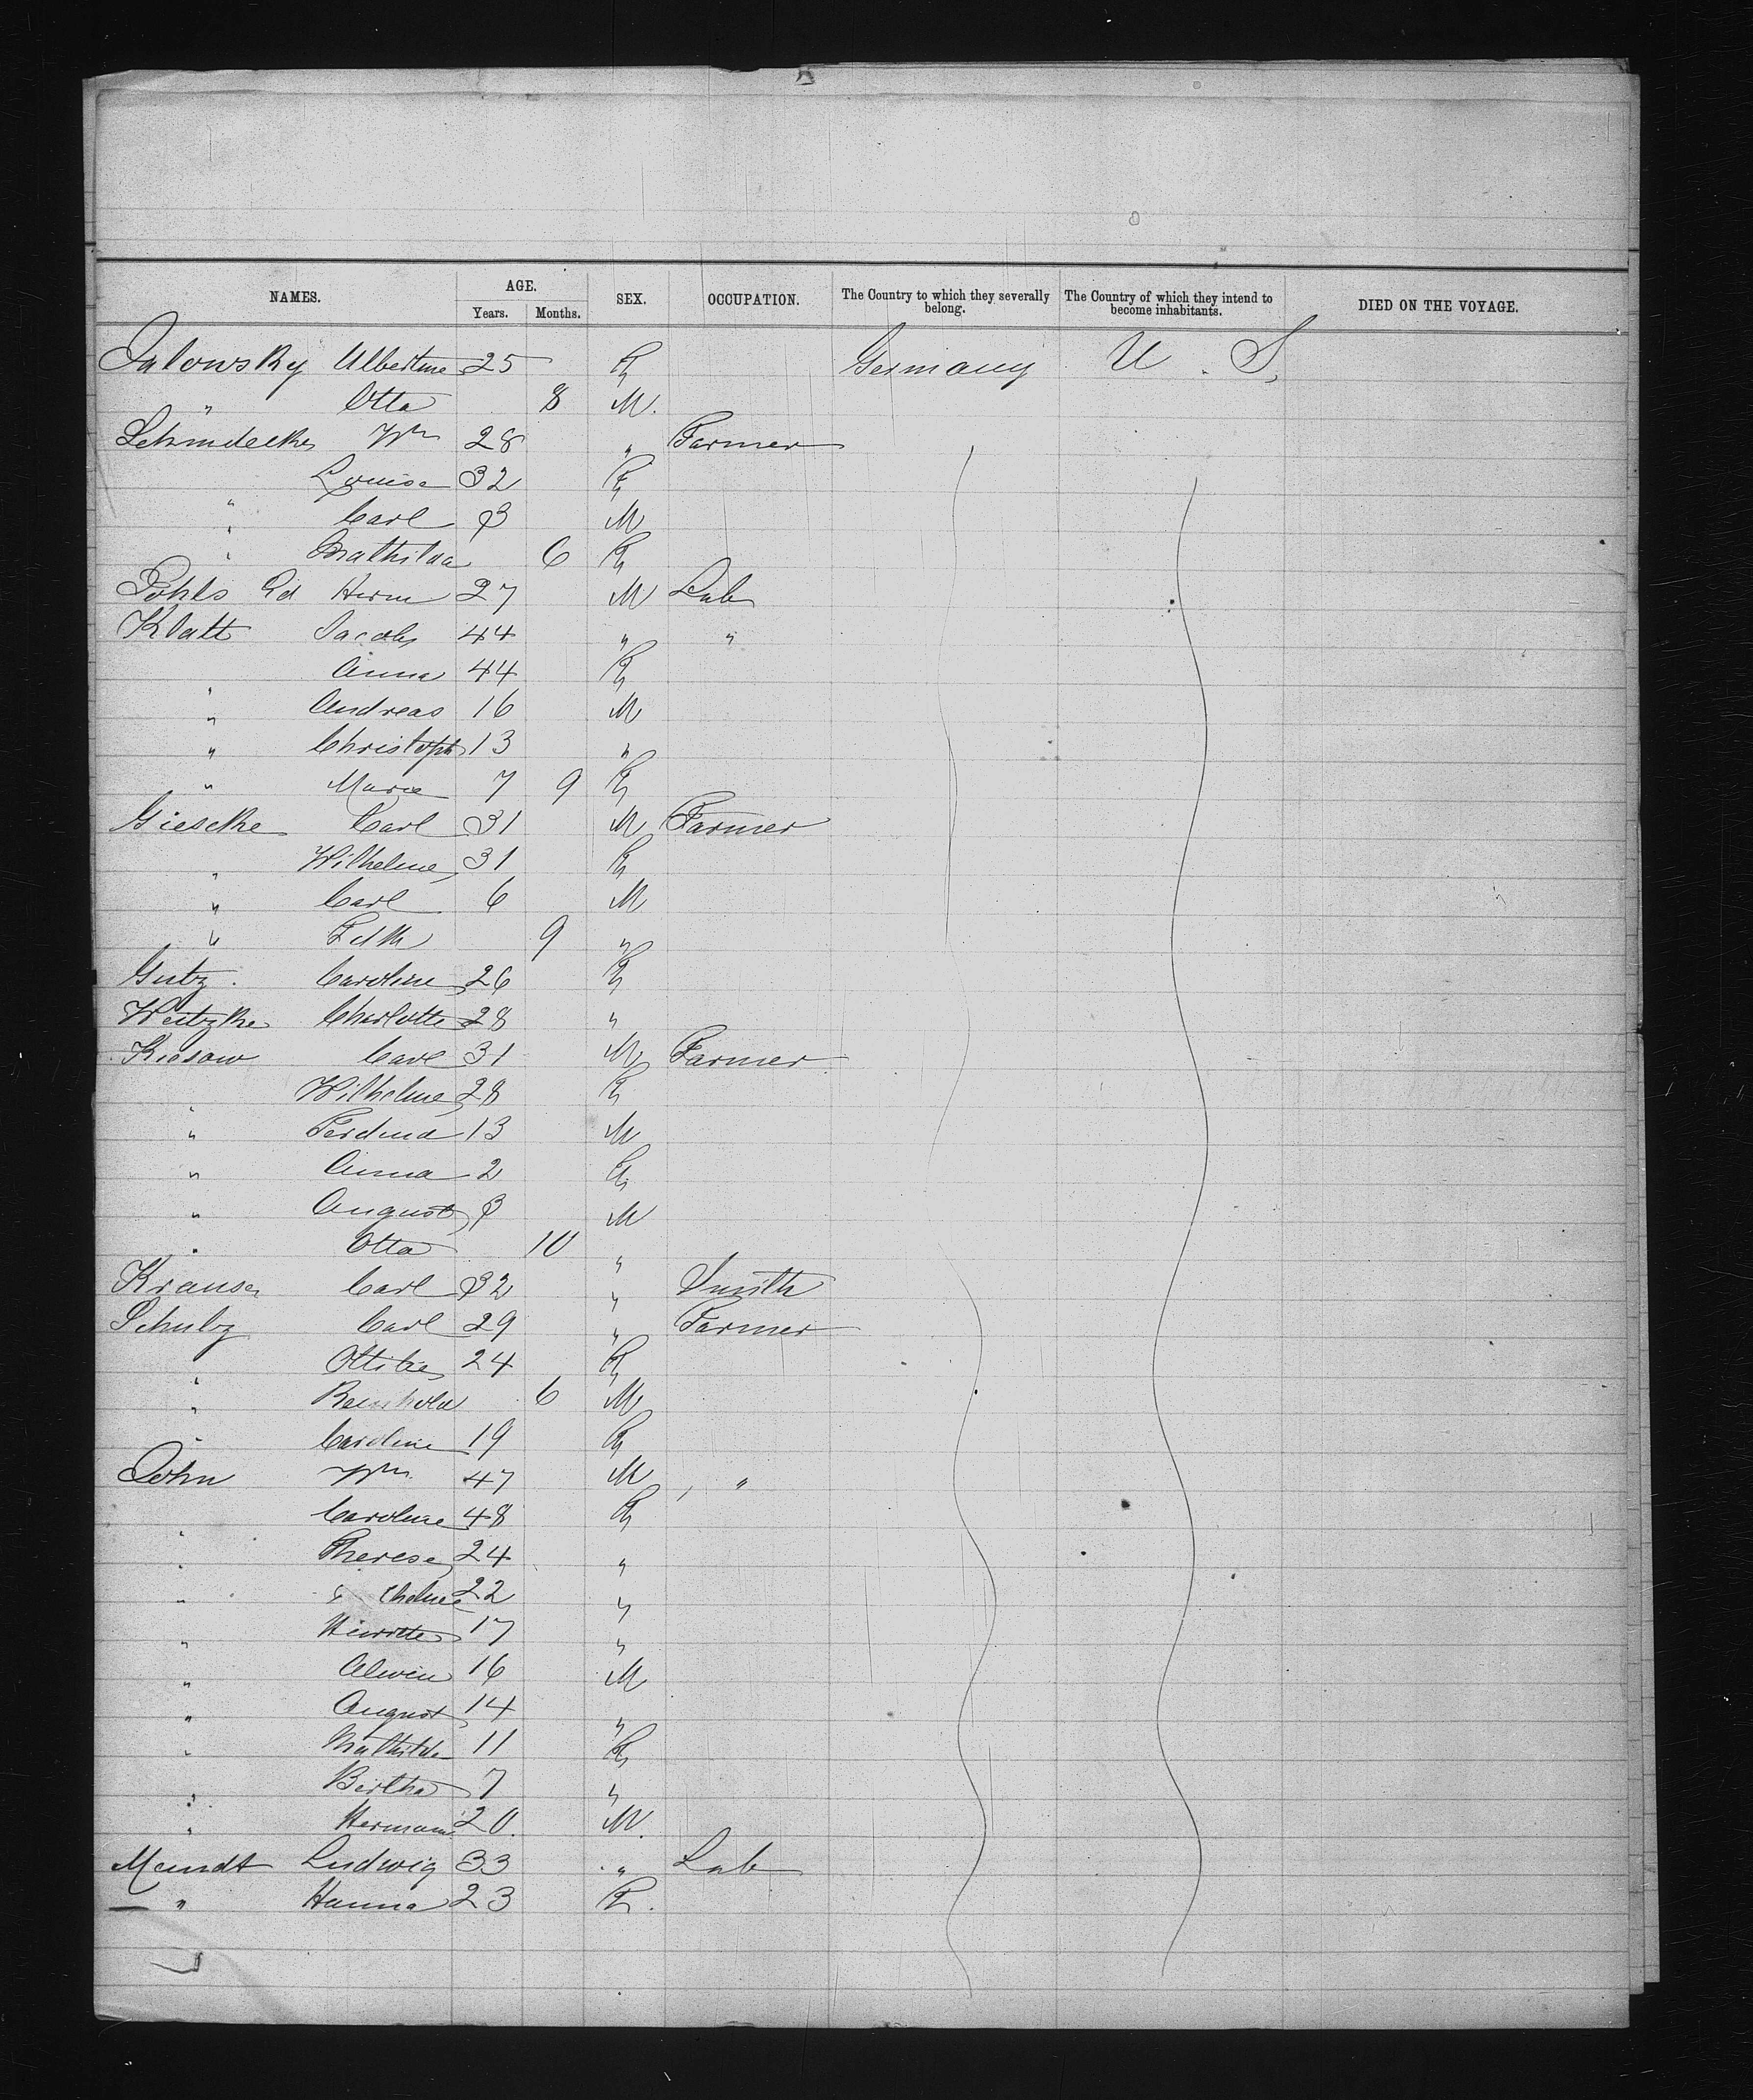 NAMES. AGE. SEX. OCCUPATION. The Country to which they severally belong. The Country of which they intend to become inhabitants. DIED ON THE VOYAGE.
Years. Months.
Jalowsky Albertine 25 F Germany U. S.
" Otto 8 M.
Wm 28 " Farmer
Louise 32 F
" Carl 3 M
" Mathilda 6 F
Pohls Ed Herm 27 M Lab
Klatt Jacob 44 " "
" Anna 44 F
" Andreas 16 M
" Christoph 13 "
" Marie 7 9 F
Giescke Carl 31 M Farmer
" Wilhelme 31 F
" Carl 6 M
" Fdth 9 "
Gutz. Caroline 26 F
Weitzke Charlotte 28 "
Kiesow Carl 31 M Farmer
" Wilhelme 28 F
" Ferdind 13 M
" Anna 2 F
" August 3 M
" Otto 10 "
Krause Carl 32 " Smith
Schulz Carl 29 " Farmer
" Ottilie 24 F
" Reinhold 6 M
" Caroline 19 F
John Wm 47 M "
" Caroline 48 F
" Therese 24 "
" 22 "
" Henritte 17 "
" Alwin 16 M
" August 14 "
" Mathilde 11 F
" Bertha 7 "
" Hermann 20. M.
Mundt Ludwig 33 " Lab
" Hanna 23 F.